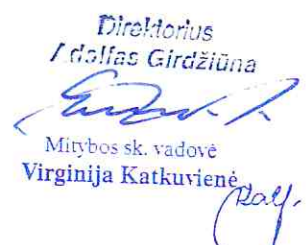 Direktorius
Adolfas Girdžiūna
Mitybos sk. vadovė
Virginija Katkuvienė